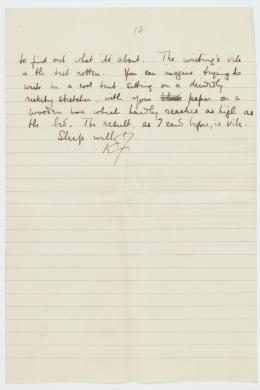 12
to find out what it's about. The writing's vile
& the text rotten. You can imagine trying to
write in a cool tent, sitting on a decidedly
rickety stretcher, with your paper on a
wooden box which hardly reaches as high as
the bed. The result, as I said before, is vile.
Sleep well